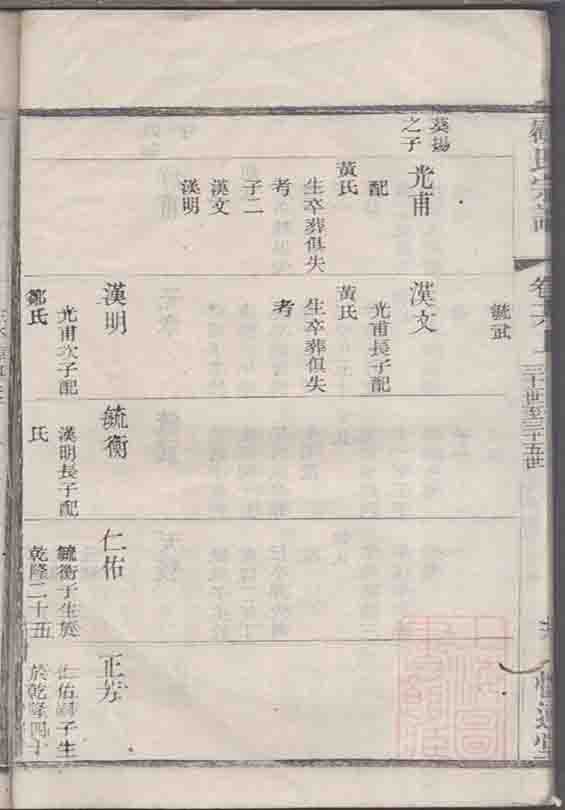 氏宗譜
卷六上
三十世至三十五世
葵揚
之子
光甫
配
黃氏
生卒葬俱失
考
子二
漢文
漢明
毓武
漢文
光甫長子配
黃氏
生卒葬俱失
考
漢明
光甫次子配
鄒氏
毓衡
漢明長子配
氏
仁佑
毓衡子生於
乾隆二十五
正芳
仁佑子生
於乾隆四十